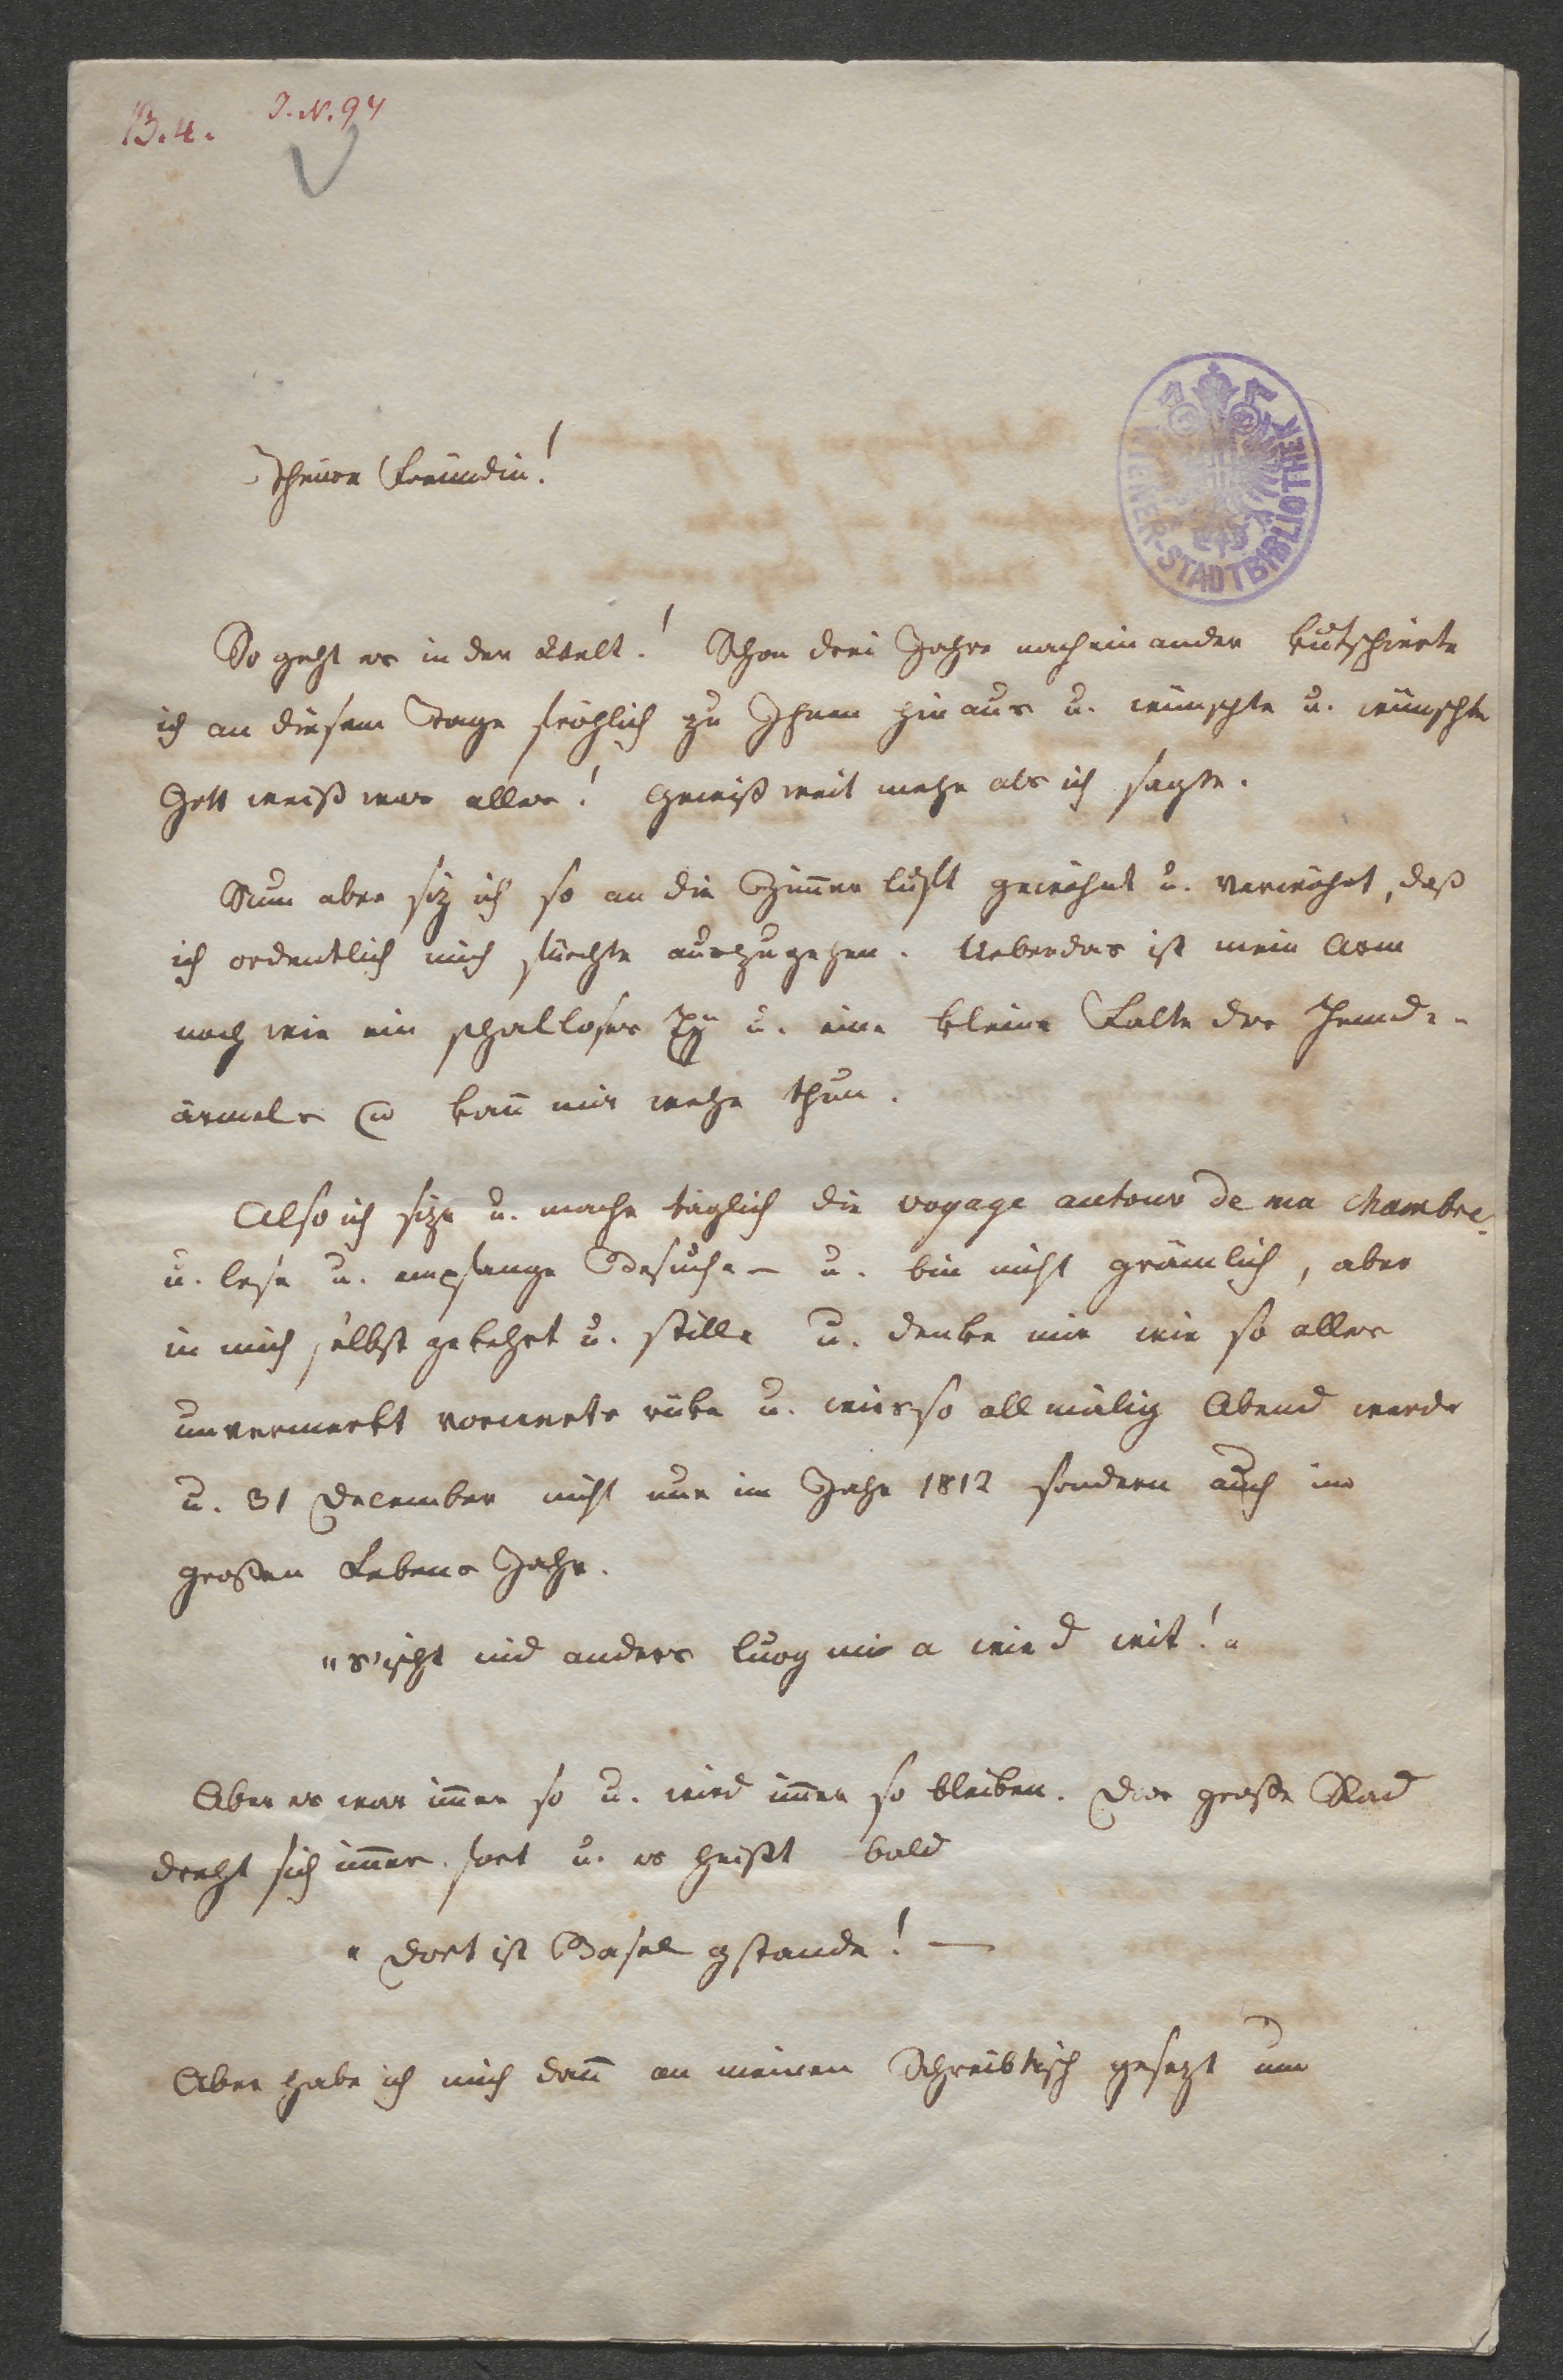 B.4. J.N. 94
Theure Freundin!
WIENER-STADTBIBLIOTHEK
So geht es in der Welt! Schon drei Jahre nach einander kutschirte
ich an diesem Tage fröhlich zu Ihnen hinaus u. wünschte u. wünschte
Gott weiß was alles! Gewiß weit mehr als ich sagte.
Nun aber siz ich so an die Zimmer luft gewöhnt u. verwöhnt, daß
ich ordentlich mich fürchte auszugehen. Ueberdas ist mein Arm
noch wie ein schalloses Ey u. eine kleine Falte des Hemd-
ärmels kan̄ mir wehe thun.
Also ich size u. mache täglich die voyage autour de ma chambre
u. lese u. empfange Besuche – u. bin nicht grämlich, aber
in mich selbst gekehrt u. stille u. denke mir wie so alles
unvermerkt vorwerts rüke u. wie so all mälig Abend werde
u. 31 December nicht nur im Jahr 1812 sondern auch im
großen Lebens Jahr.
"s'ischt nid anders lueg mi a wie d wit!"
Aber es war im̄er so u. wird im̄er so bleiben. Das große Rad
dreht sich im̄er fort u. es heißt bald
"Dort ist Basel gstande! —
Aber habe ich mich dan̄ an meinen Schreibtisch gesezt um